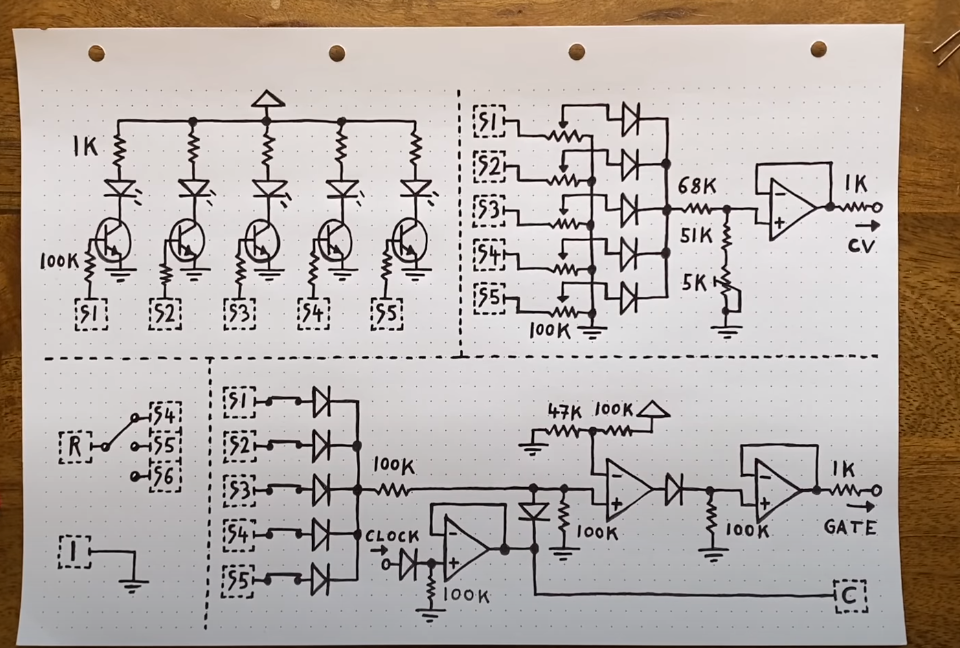 1K
100K
S1 S2 S3 S4 S5
S1
S2
S3
S4
S5
100K
68K
51K
5K
1K
CV
R
S4
S5
S6
I
S1
S2
S3
S4
S5
100K
CLOCK
100K
47K 100K
100K
100K
1K
GATE
C